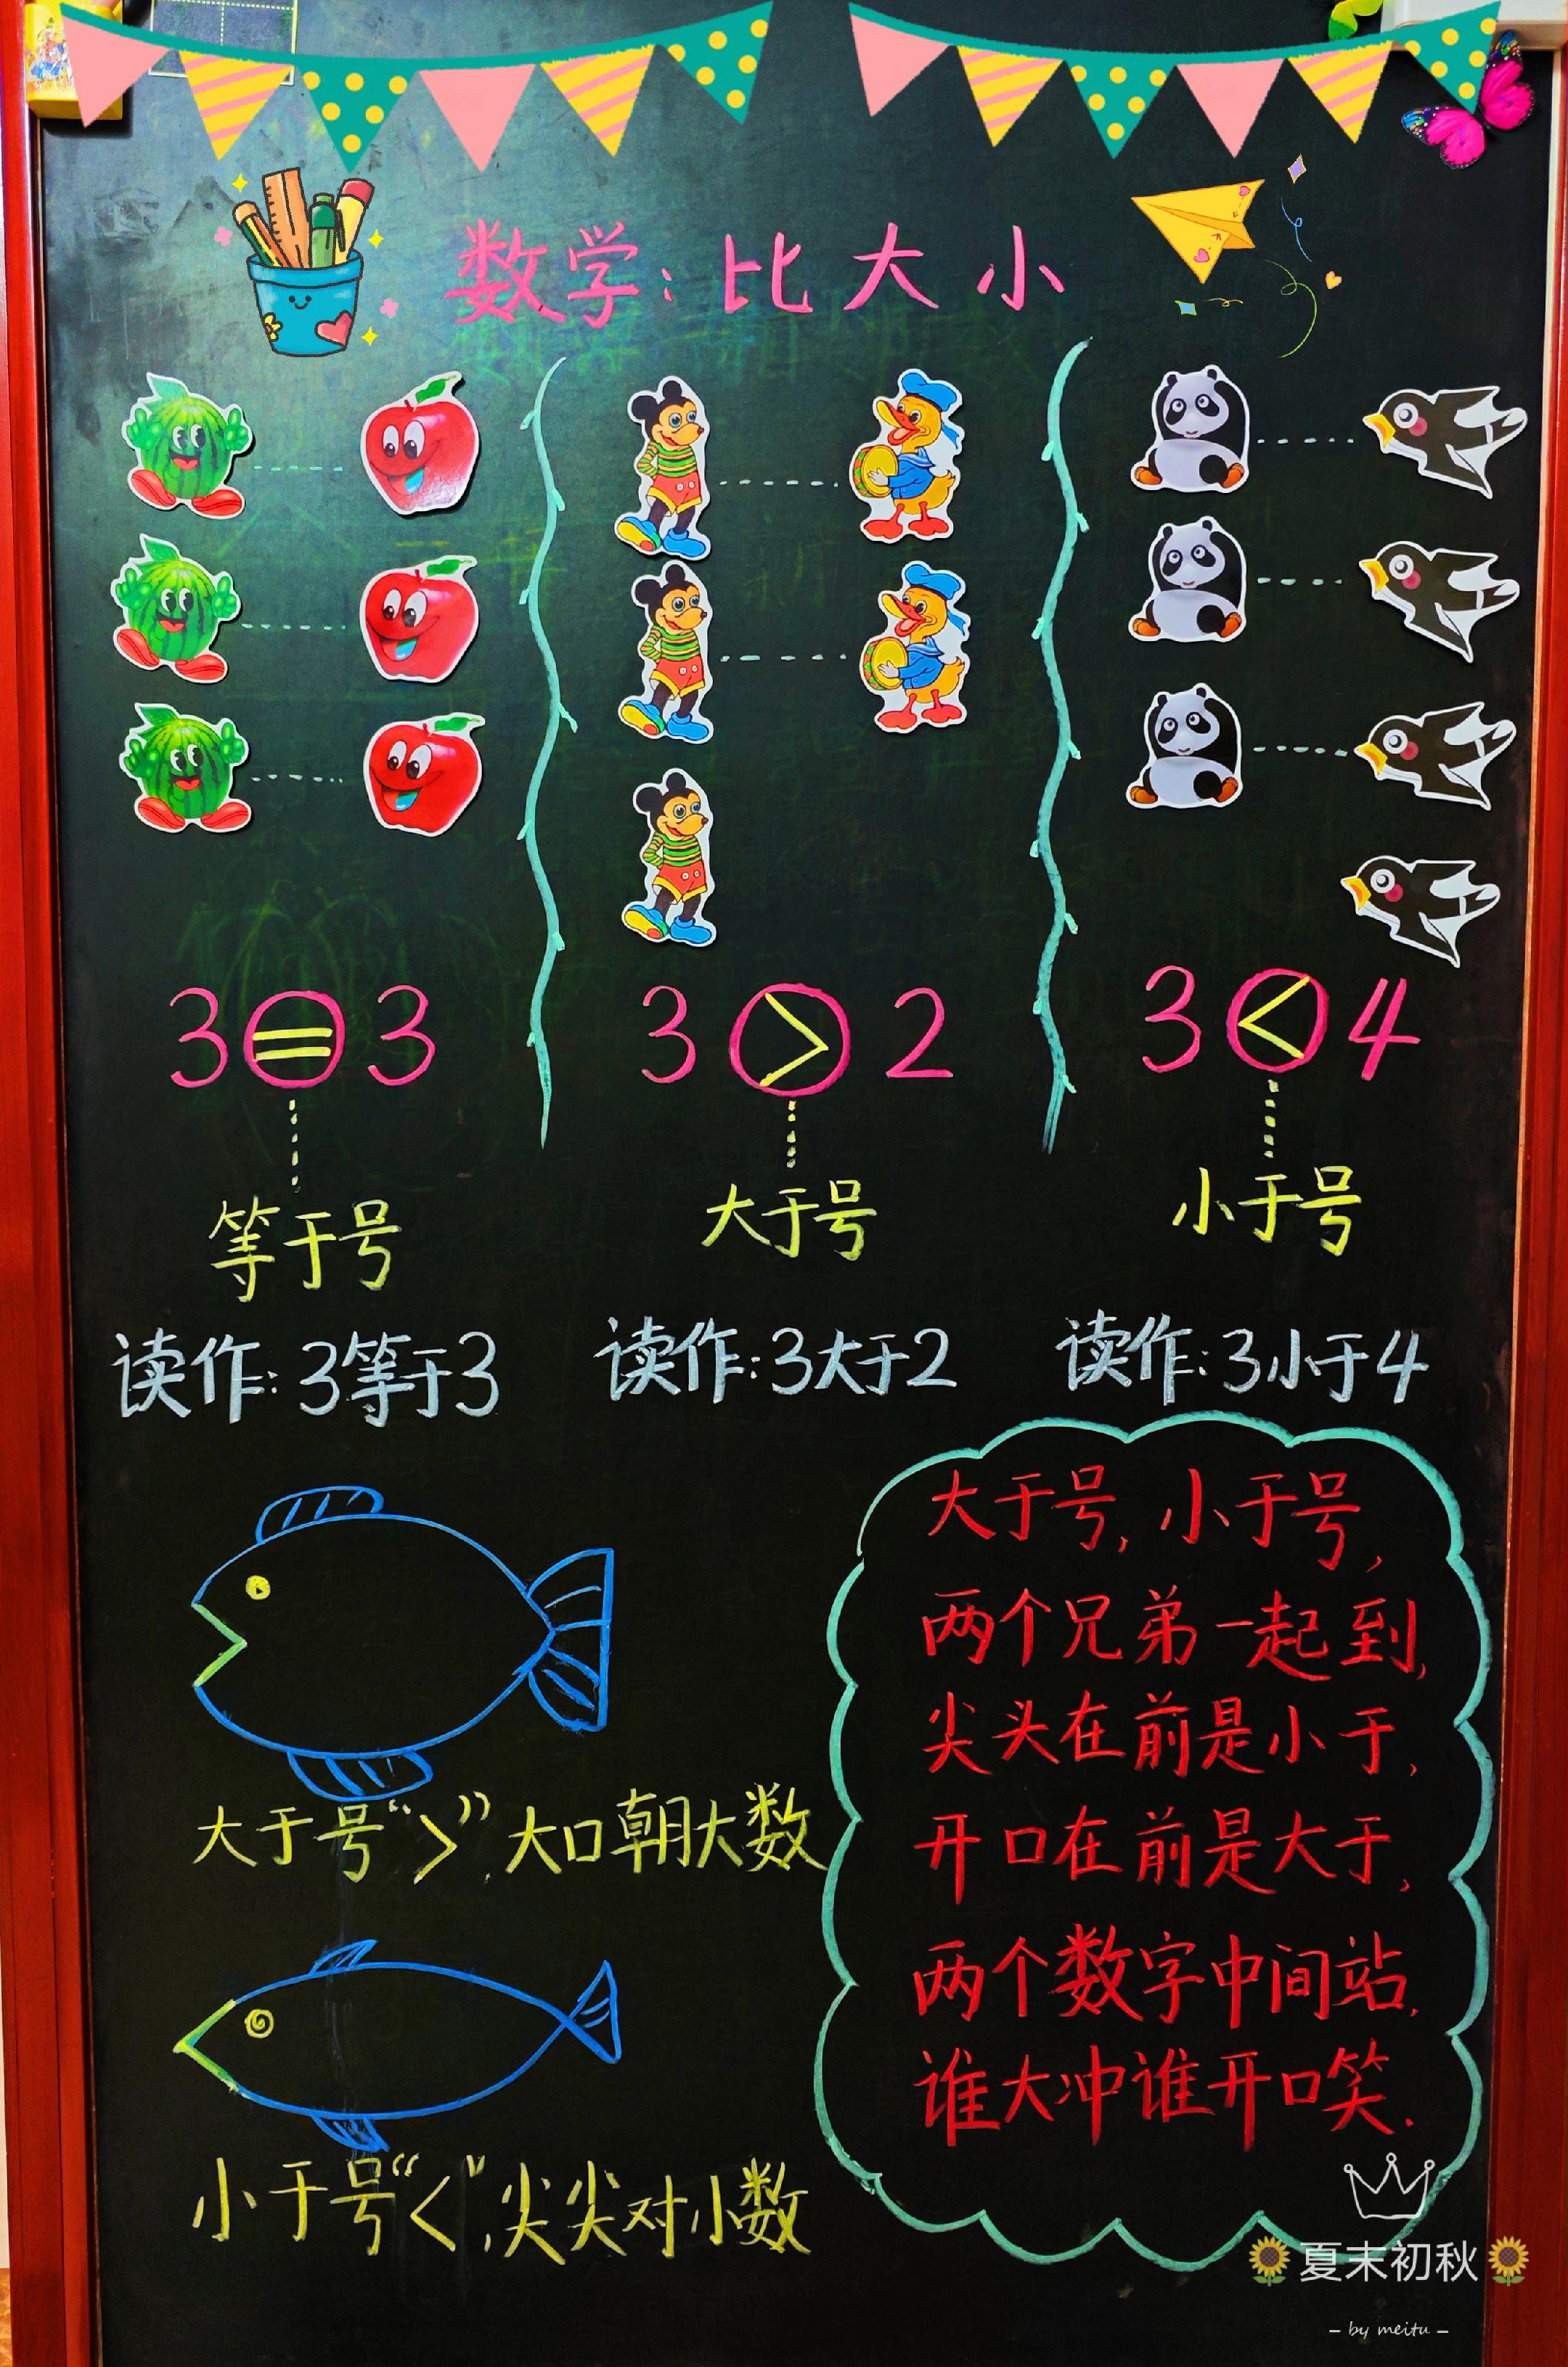 数学：比大小
3＝3
3＞2
3＜4
等于号
大于号
小于号
读作：3等于3
读作：3大于2
读作：3小于4
大于号“＞”，大口朝大数
小于号“＜”，尖尖对小数
大于号，小于号，
两个兄弟一起到，
尖头在前是小于，
开口在前是大于，
两个数字中间站，
谁大冲谁开口笑．
🌻夏末初秋🌻
– by meitu –